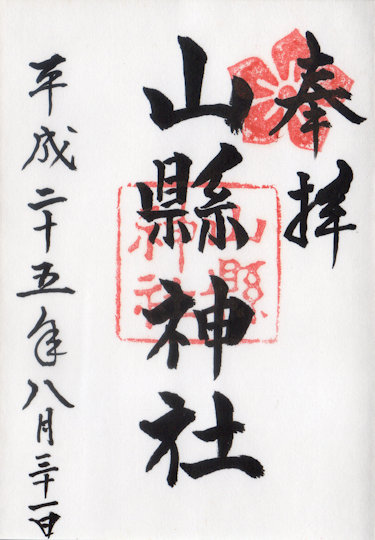 奉拝
山縣神社
山縣
神社
平成二十五年八月三十一日